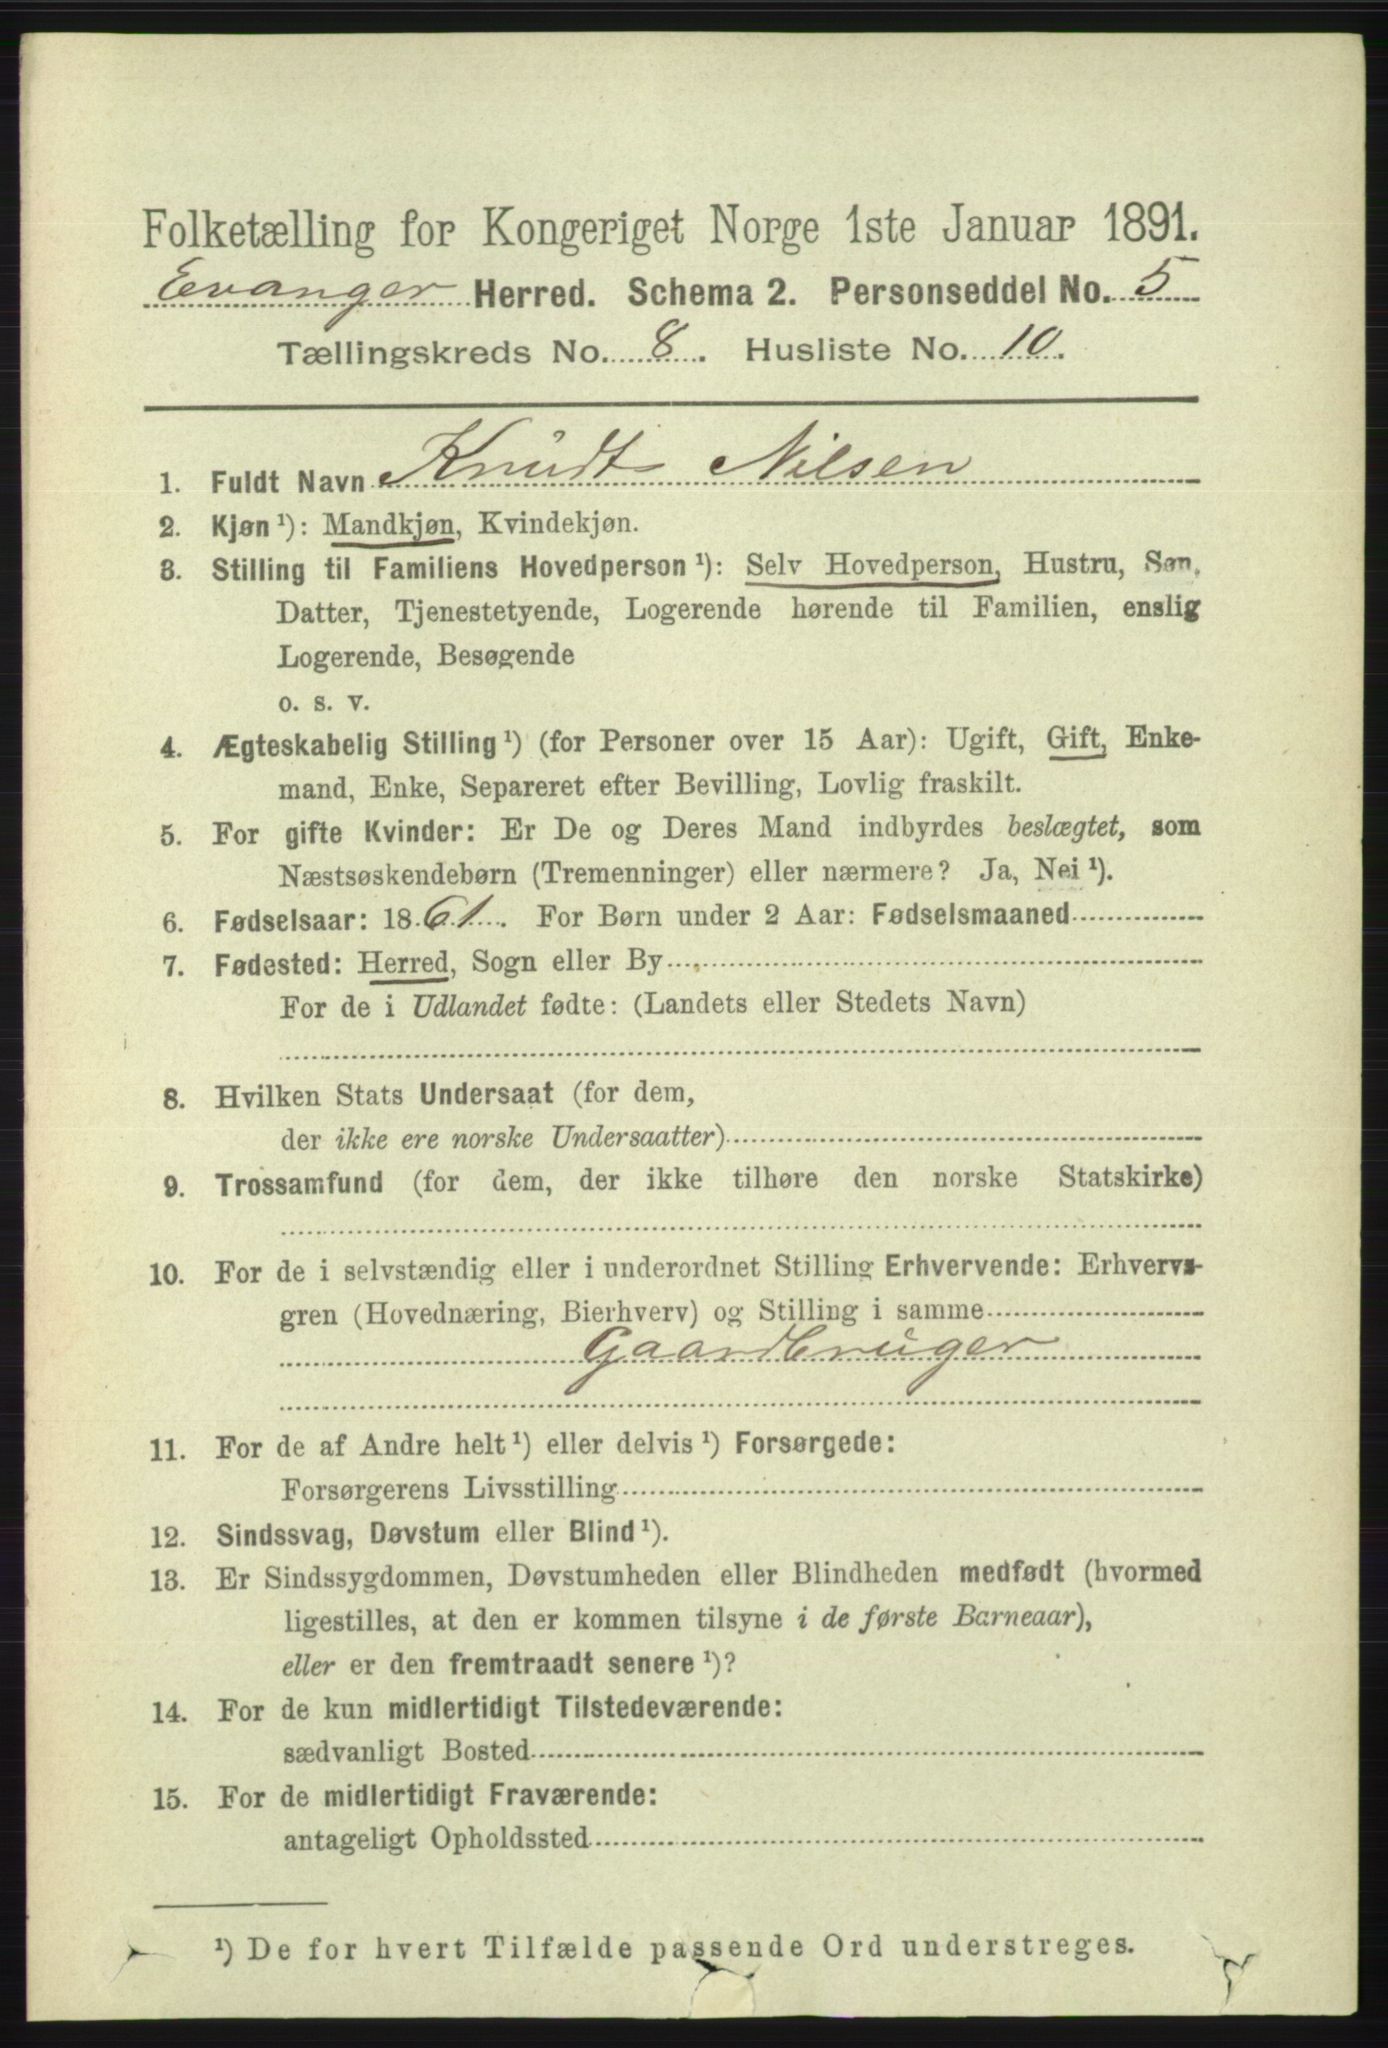 Folketælling for Kongeriget Norge 1ste Januar 1891.
Evanger Herred. Schema 2. Personseddel No. 5
Tællingskreds No. 8. Husliste No. 10.
1. Fuldt Navn Knudt Nilsen
2. Kjøn ¹): Mandkjøn, Kvindekjøn.
3. Stilling til Familiens Hovedperson ¹): Selv Hovedperson, Hustru, Søn,
Datter, Tjenestetyende, Logerende hørende til Familien, enslig
Logerende, Besøgende
o. s. v.
4. Ægteskabelig Stilling ¹) (for Personer over 15 Aar): Ugift, Gift, Enke-
mand, Enke, Separeret efter Bevilling, Lovlig fraskilt.
5. For gifte Kvinder: Er De og Deres Mand indbyrdes beslægtet, som
Næstsøskendebørn (Tremenninger) eller nærmere? Ja, Nei ¹).
6. Fødselsaar: 1861. For Børn under 2 Aar: Fødselsmaaned
7. Fødested: Herred, Sogn eller By
For de i Udlandet fødte: (Landets eller Stedets Navn)
8. Hvilken Stats Undersaat (for dem,
der ikke ere norske Undersaatter)
9. Trossamfund (for dem, der ikke tilhøre den norske Statskirke)
10. For de i selvstændig eller i underordnet Stilling Erhvervende: Erhvervs-
gren (Hovednæring, Bierhverv) og Stilling i samme
Gaardbruger
11. For de af Andre helt ¹) eller delvis ¹) Forsørgede:
Forsørgerens Livsstilling
12. Sindssvag, Døvstum eller Blind ¹).
13. Er Sindssygdommen, Døvstumheden eller Blindheden medfødt (hvormed
ligestilles, at den er kommen tilsyne i de første Barneaar),
eller er den fremtraadt senere ¹)?
14. For de kun midlertidigt Tilstedeværende:
sædvanligt Bosted
15. For de midlertidigt Fraværende:
antageligt Opholdssted
¹) De for hvert Tilfælde passende Ord understreges.